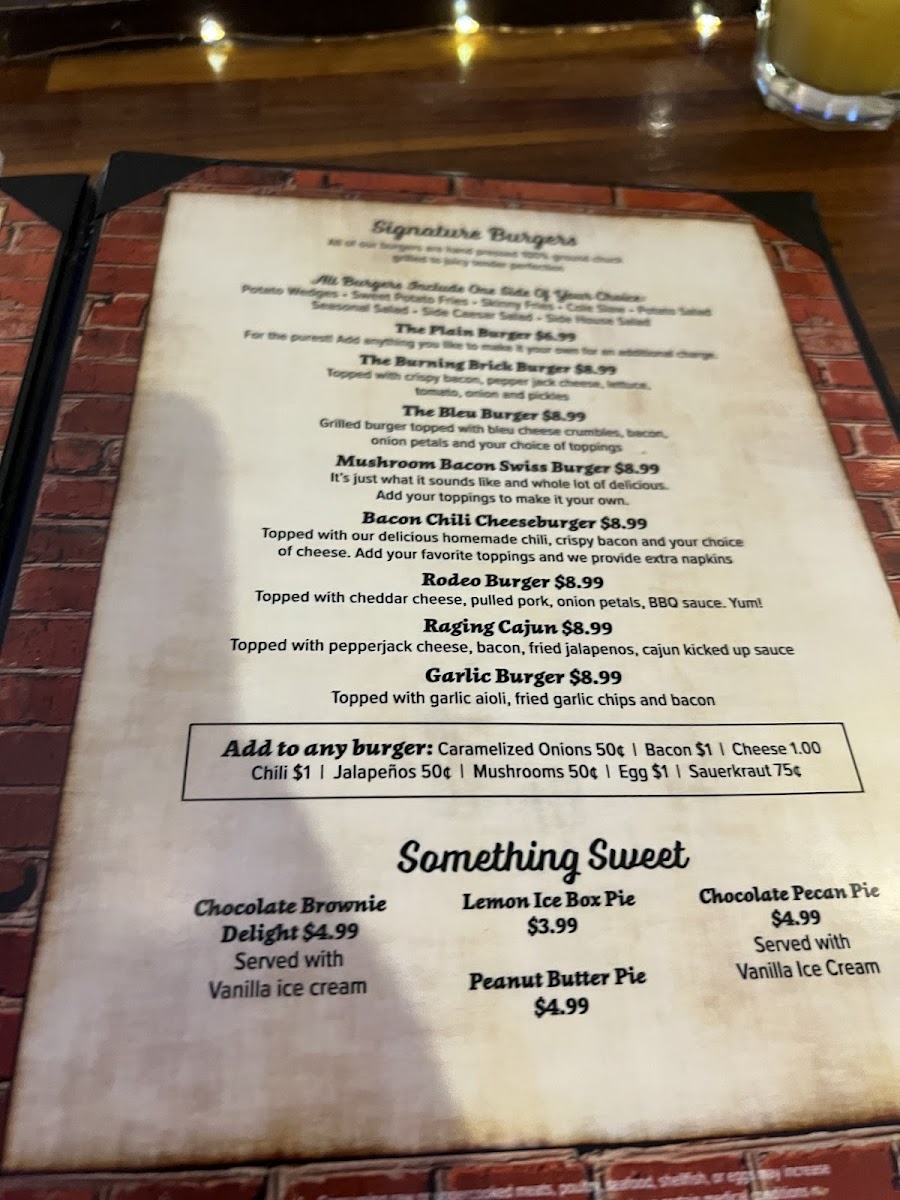 Signature Burgers
All of our burgers are hand pressed 100% ground chuck
grilled to juicy tender perfection
All Burgers Include One Side Of Your Choice:
Potato Wedges - Sweet Potato Fries - Skinny Fries - Cole Slaw - Potato Salad
Seasonal Salad - Side Caesar Salad - Side House Salad
The Plain Burger $6.99
For the purest! Add anything you like to make it your own for an additional charge.
The Burning Brick Burger $8.99
Topped with crispy bacon, pepper jack cheese, lettuce,
tomato, onion and pickles
The Bleu Burger $8.99
Grilled burger topped with bleu cheese crumbles, bacon,
onion petals and your choice of toppings
Mushroom Bacon Swiss Burger $8.99
It's just what it sounds like and whole lot of delicious.
Add your toppings to make it your own.
Bacon Chili Cheeseburger $8.99
Topped with our delicious homemade chili, crispy bacon and your choice
of cheese. Add your favorite toppings and we provide extra napkins
Rodeo Burger $8.99
Topped with cheddar cheese, pulled pork, onion petals, BBQ sauce. Yum!
Raging Cajun $8.99
Topped with pepperjack cheese, bacon, fried jalapenos, cajun kicked up sauce
Garlic Burger $8.99
Topped with garlic aioli, fried garlic chips and bacon
Add to any burger: Caramelized Onions 50¢ | Bacon $1 | Cheese 1.00
Chili $1 | Jalapeños 50¢ | Mushrooms 50¢ | Egg $1 | Sauerkraut 75¢
Something Sweet
Chocolate Brownie
Delight $4.99
Served with
Vanilla ice cream
Lemon Ice Box Pie
$3.99
Peanut Butter Pie
$4.99
Chocolate Pecan Pie
$4.99
Served with
Vanilla Ice Cream
meats, poultry, seafood, shellfish, or eggs may increase